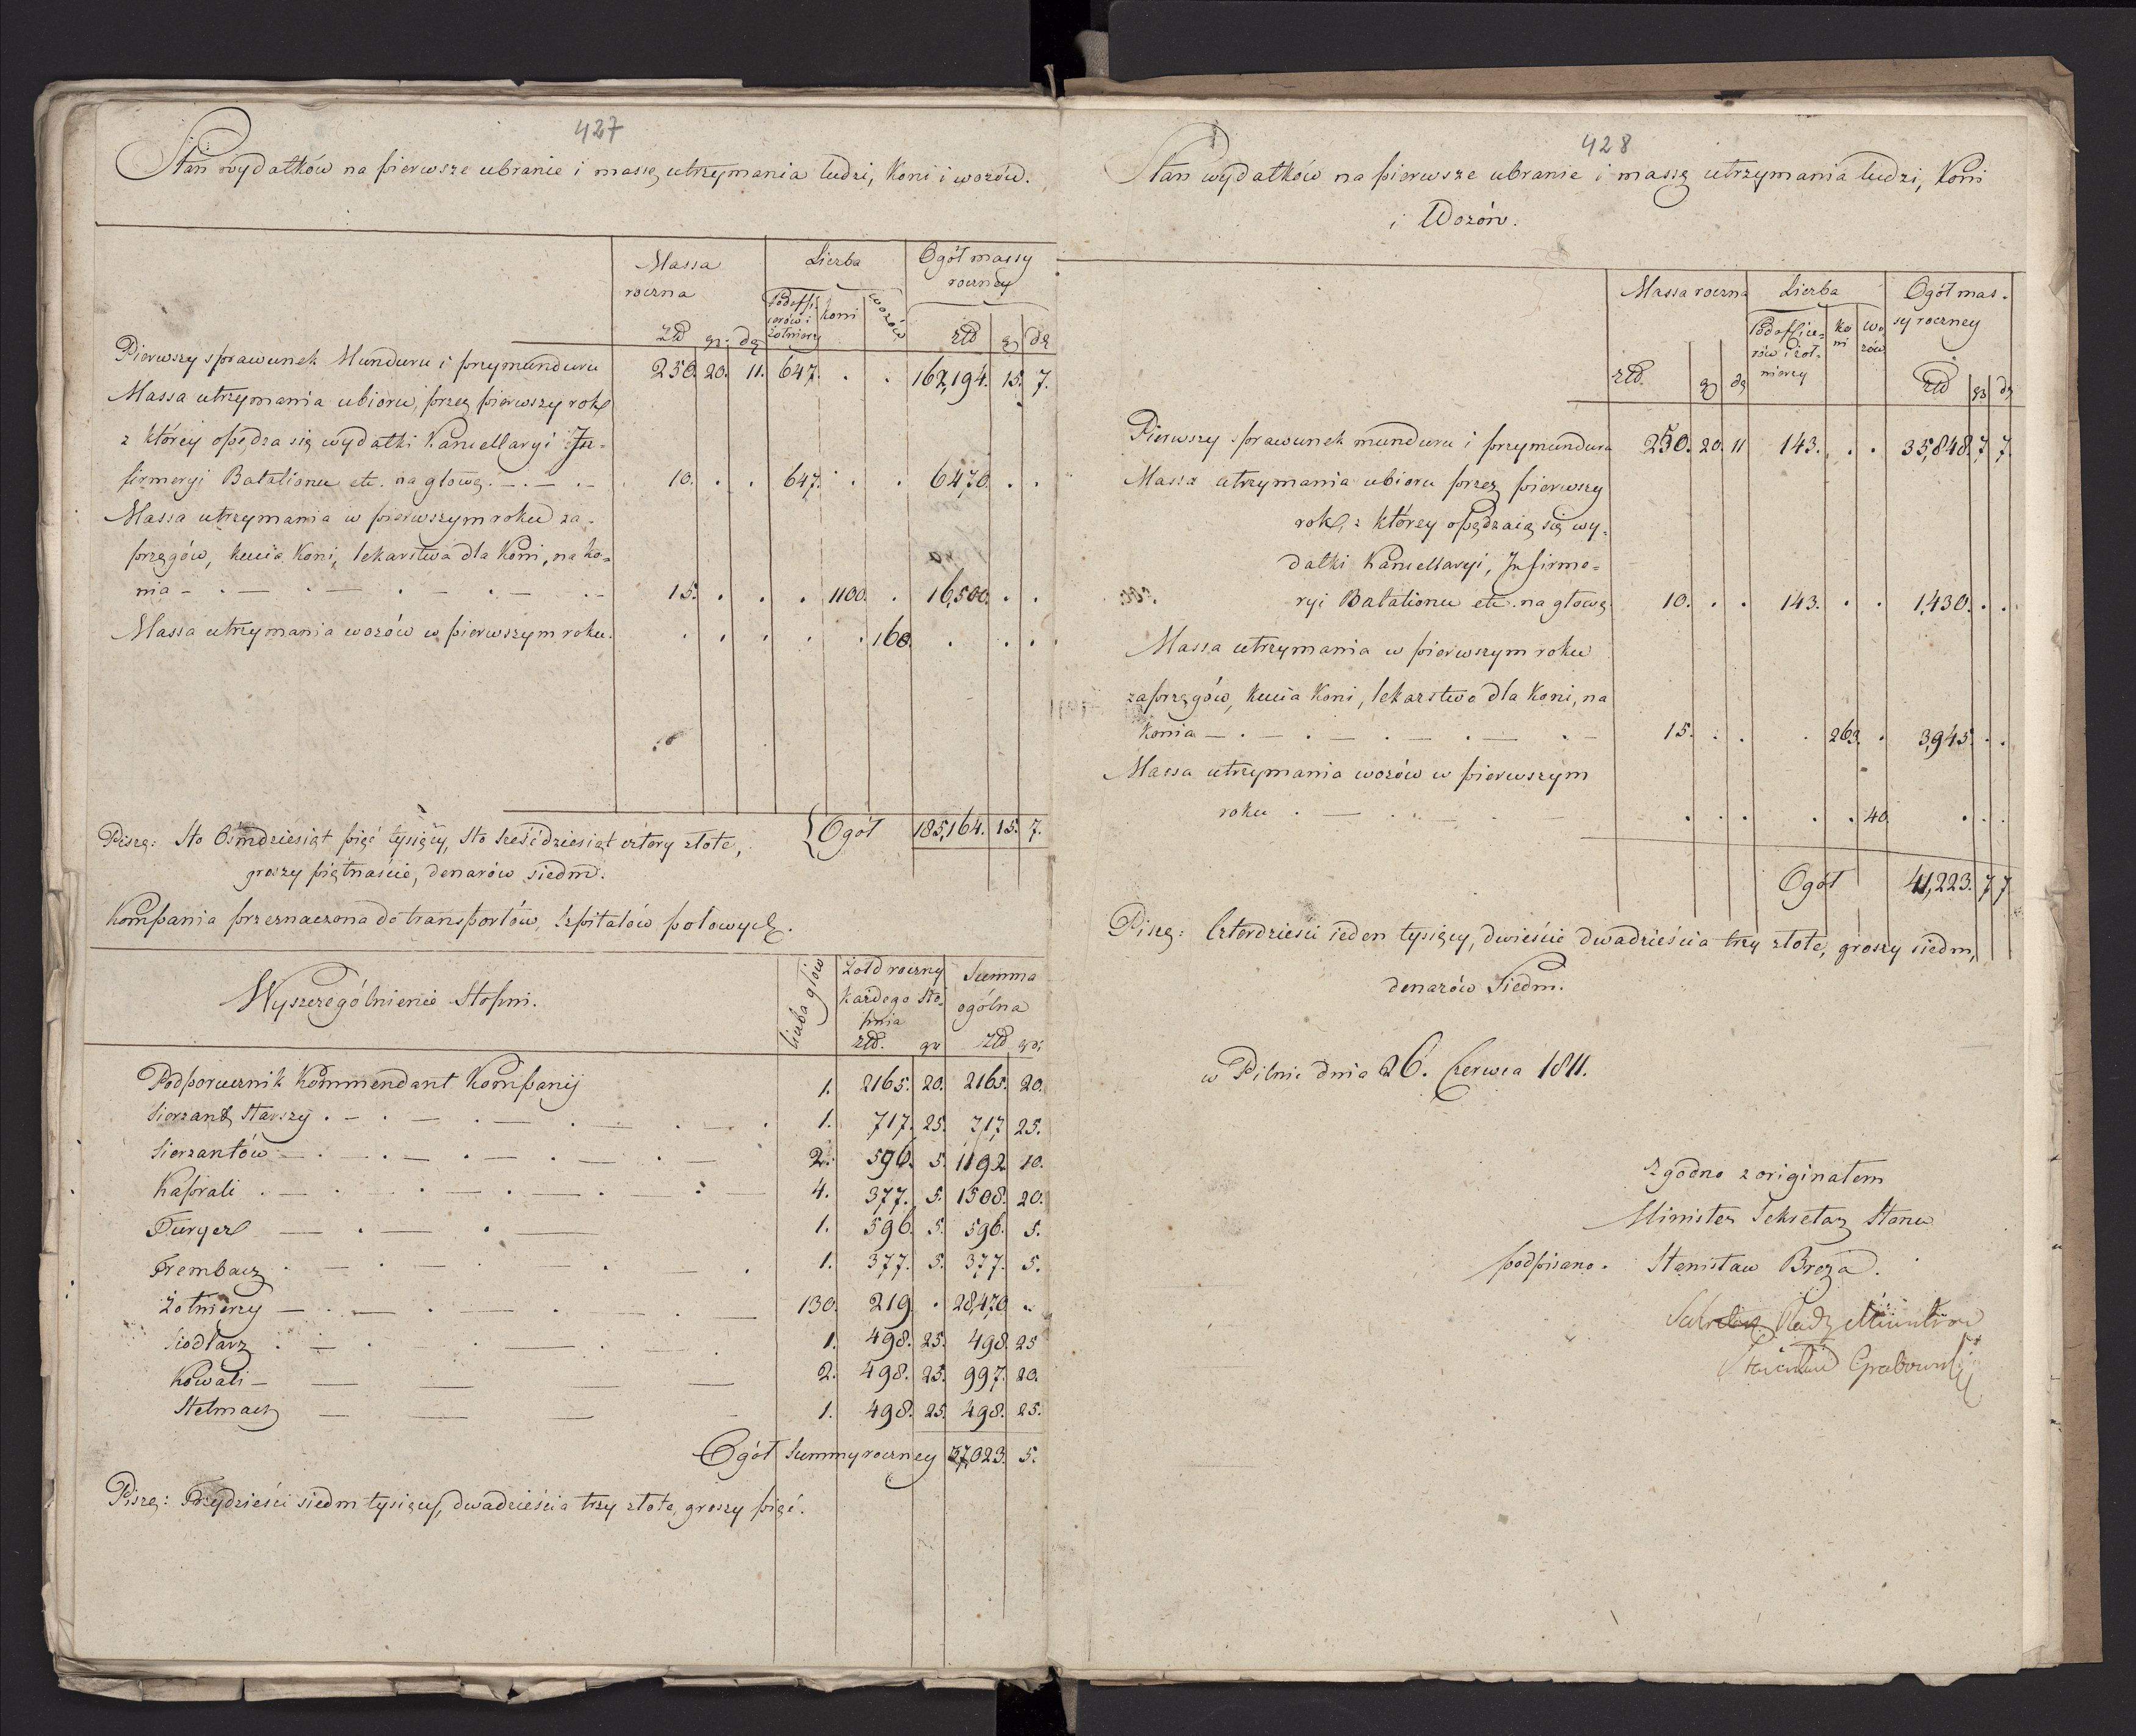 427
Stan wydatków na pierwsze ubranie i massę utrzymania ludzi, Koni i wozów.
Massa roczna
Liczba
Ogół massy roczney
Podoffi-
cerów i
Żołnierzy
koni
wozów
złł gr. dę
złł g dę
Pierwszy sprawunek Munduru i przymunduru 250. 20. 11. 647. . . 162,194. 15. 7.
Massa utrzymania ubioru, przez pierwszy rok
z którey opędza się wydatki Kancellaryi In-
firmeryi Batalionu etc. na głowę. 10. . . 647. . . 6470. . .
Massa utrzymania w pierwszym roku za-
przęgów, kucia Koni, lekarstwa dla Koni, na ko-
nia 15. . . . 1100. . 16,500. . .
Massa utrzymania wozów w pierwszym roku. . . . . . 160. . . .
Ogół 185,164. 15. 7.
Piszę: Sto Ośmdziesiąt pięć tysięcy, Sto Sześćdziesiąt cztery złote,
groszy piętnaście, denarów siedm.
Kompania przeznaczona do transportów, Szpitalów polowych.
Wyszczególnienie Stopni.
Liczba głów
Żołd roczny
każdego Sto-
pnia
złł. gr
Summa
ogólna
złł gr.
Podporucznik Kommendant Kompanij 1. 2165. 20. 2165. 20.
Sierzant Starszy 1. 717. 25. 717 25.
Sierzantów 2. 596. 5. 1192 10.
Kaprali 4. 377. 5. 1508. 20.
Furyer 1. 596. 5. 596. 5.
Trembacz 1. 377. 5. 377. 5.
Żołnierzy 130. 219. . 28,470 ..
Siodlarz 1. 498. 25. 498. 25
Kowali 2. 498. 25. 997. 20.
Stelmach 1. 498. 25. 498. 25.
Ogół Summy roczney 37,023. 5.
Piszę: Trzydzieści siedm tysięcy, dwadzieścia trzy złote, groszy pięć.
428
Stan wydatków na pierwsze ubranie i massę utrzymania ludzi, Koni
i Wozów.
Massa roczna
Liczba
Ogół mas-
sy roczney
Podoffice-
rów i żoł-
nierzy
ko
ni
wo
zów
złł. g dę
złł gr dę
Pierwszy sprawunek munduru i przymundura 250. 20. 11 143. . . 35,848. 7 7.
Massa utrzymania ubioru przez pierwszy
rok, z którey opędzaią się wy-
datki Kancellaryi, Infirme-
ryi Batalionu etc. na głowę. 10. . . 143. . . 1,430. . .
Massa utrzymania w pierwszym roku
zaprzęgów, kucia Koni, lekarstwo dla Koni, na
Konia 15. . . . 263. . 3,945. . .
Massa utrzymania wozów w pierwszym
roku . . . . . 40. . . .
Ogół 41,223. 7 7.
Piszę: Czterdzieści ieden tysięcy, dwieście dwadzieścia trzy złote, groszy siedm,
denarów Siedm.
w Pilnic dnia 26. Czerwca 1811.
Zgodno z originałem
Minister Sekretarz Stanu
podpisano. Stanisław Breza.
Sekretarz Rady Ministrów
Stanisław Grabowski